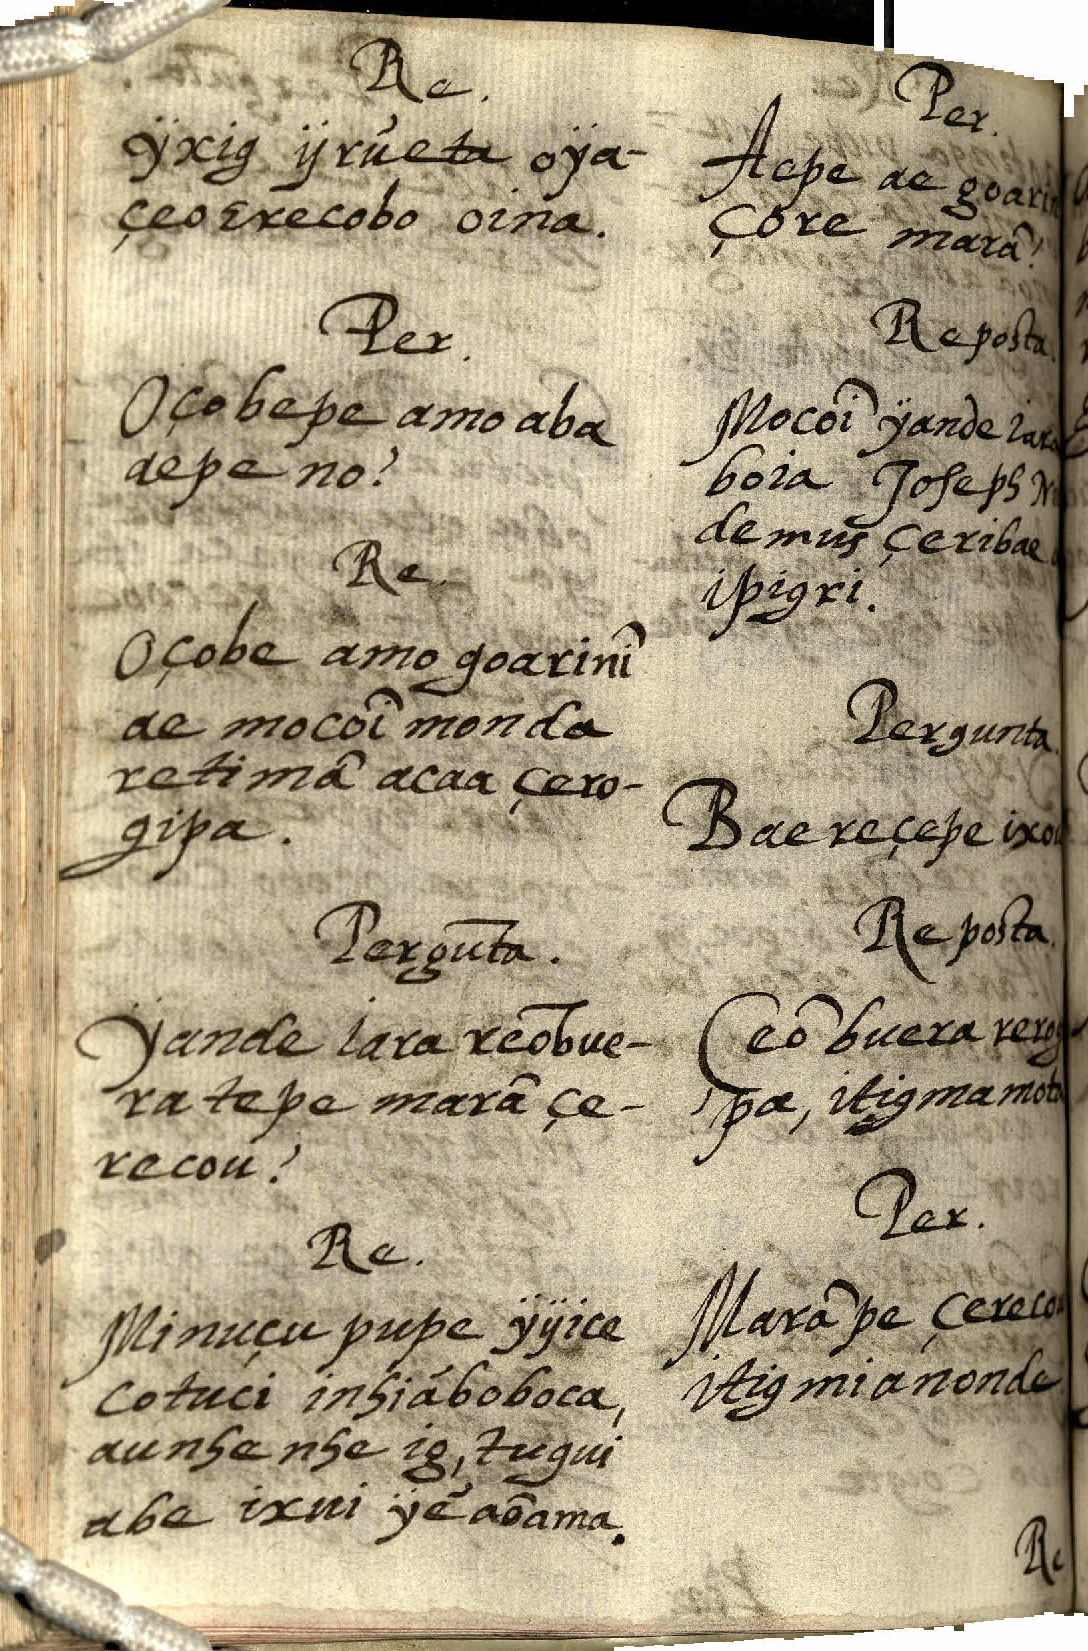 Re.
ÿxig ijrũeta oÿa-
çeoerecobo oina.
Per.
Oçobepe amo aba
aepe no?
Re.
Oçobe amo goarinî
ae mocoî monda
retimâ acaa çero-
gipa.
Pergũta.
Yande iara reõbue-
ra tepe marã çe-
recou?
Re.
Minuçu pupe ÿyice
cotuci inhiáboboca,
aunhe nhe ig, tugui
abe ixui ÿẽ aõama.
Per.
Aepe ae goarin
çore marã?
Reposta.
Mocoî ÿande iara
boia Joseph
demus çeribae
ipigri.
Pergunta.
Baereçepe ixou
Reposta.
Ceõ buera rerog
pa, itigmamota
Per.
Marã pe çerecou
itigmianonde
Re